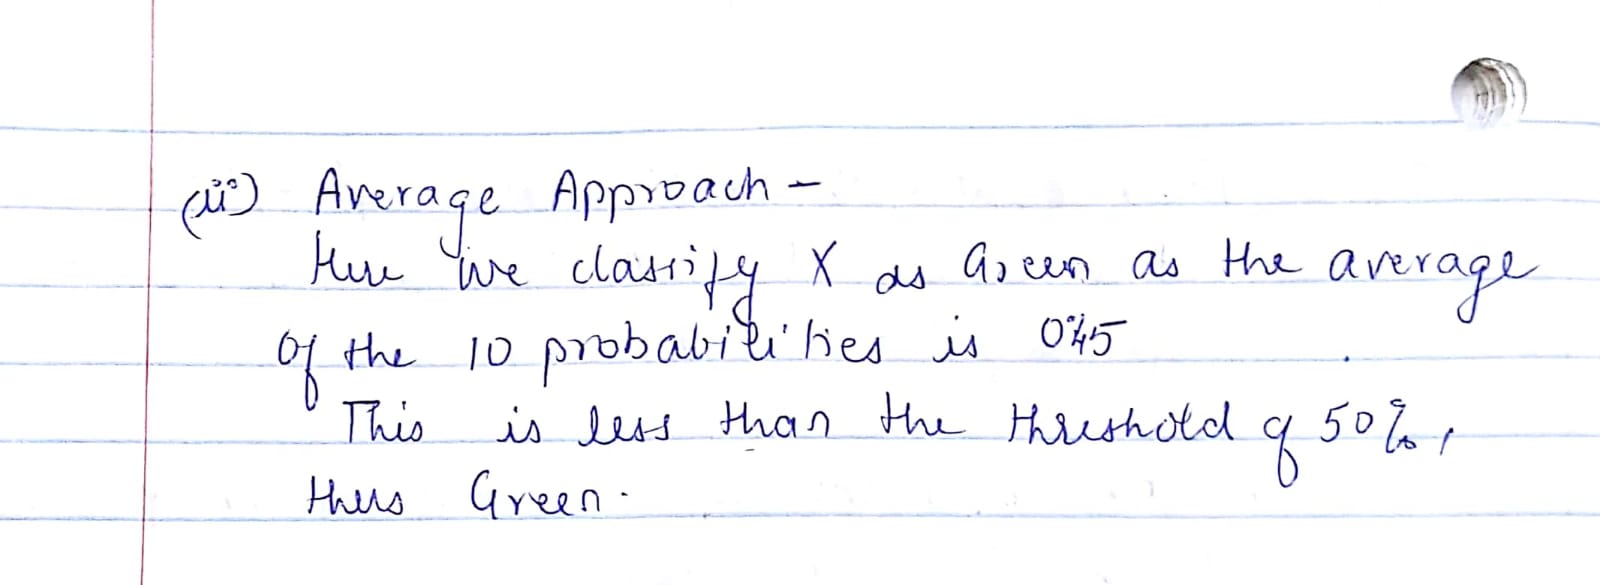 (ii) Average Approach -
Here we classify X as Green as the average
of the 10 probabilities is 0.45
This is less than the threshold of 50%,
thus Green.